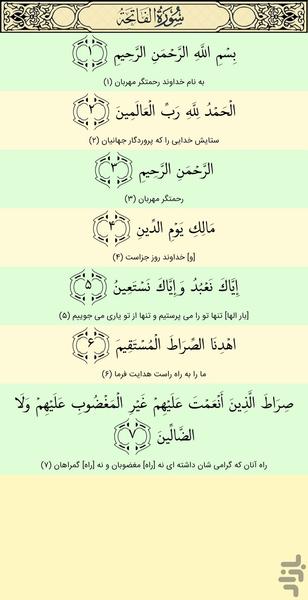 سُورَةُ الفَاتِحَة
بِسْمِ اللَّهِ الرَّحْمَنِ الرَّحِيمِ ﴿۱﴾
به نام خداوند رحمتگر مهربان (۱)
الْحَمْدُ لِلَّهِ رَبِّ الْعَالَمِينَ ﴿۲﴾
ستایش خدایی را که پروردگار جهانیان (۲)
الرَّحْمَنِ الرَّحِيمِ ﴿۳﴾
رحمتگر مهربان (۳)
مَالِكِ يَوْمِ الدِّينِ ﴿۴﴾
[و] خداوند روز جزاست (۴)
إِيَّاكَ نَعْبُدُ وَإِيَّاكَ نَسْتَعِينُ ﴿۵﴾
[بار الها] تنها تو را می پرستیم و تنها از تو یاری می جوییم (۵)
اهْدِنَا الصِّرَاطَ الْمُسْتَقِيمَ ﴿۶﴾
ما را به راه راست هدایت فرما (۶)
صِرَاطَ الَّذِينَ أَنْعَمْتَ عَلَيْهِمْ غَيْرِ الْمَغْضُوبِ عَلَيْهِمْ وَلَا
الضَّالِّينَ ﴿۷﴾
راه آنان که گرامی شان داشته ای نه [راه] مغضوبان و نه [راه] گمراهان (۷)
بازار